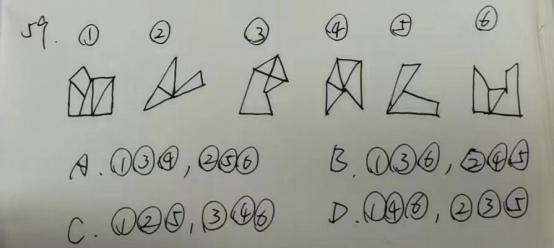 59. ① ② ③ ④ ⑤ ⑥
A. ①③④, ②⑤⑥ B. ①③⑥, ②④⑤
C. ①②⑤, ③④⑥ D. ①④⑥, ②③⑤